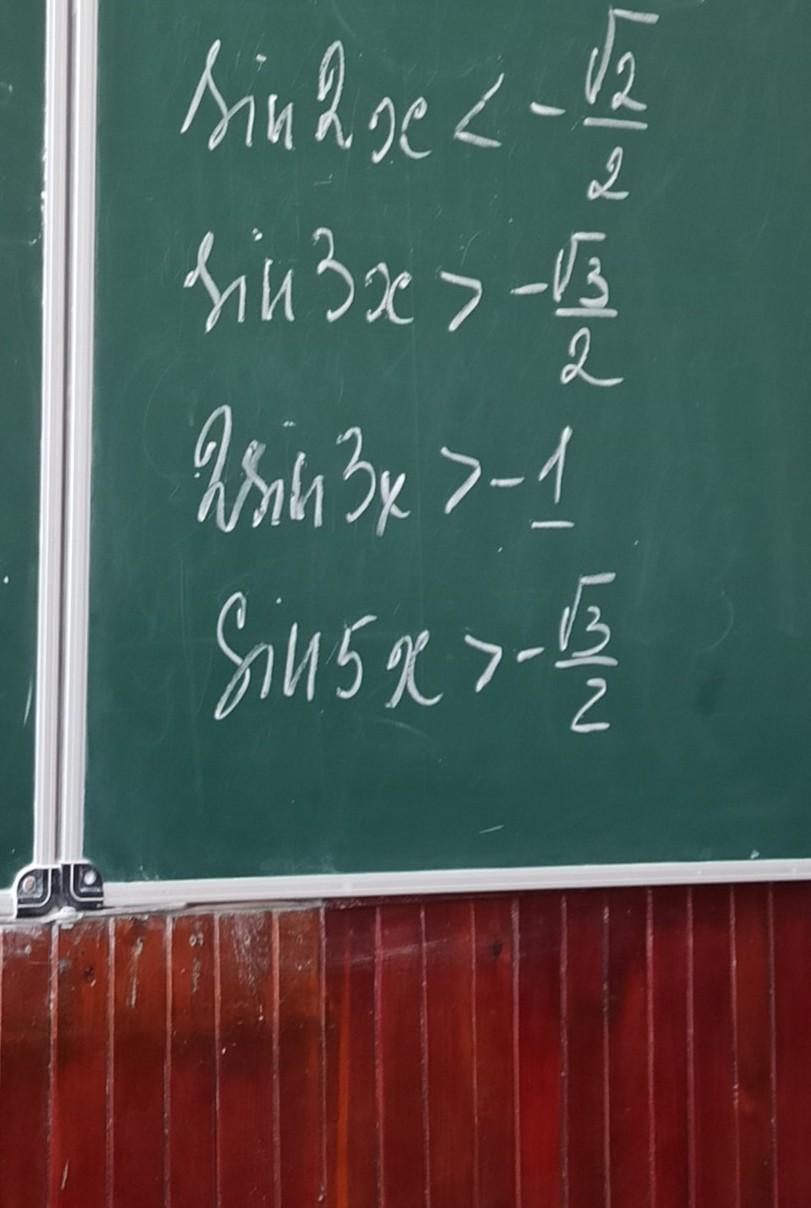 sin2x < -√2/2
sin3x > -√3/2
2sin3x > -1
sin5x > -√3/2